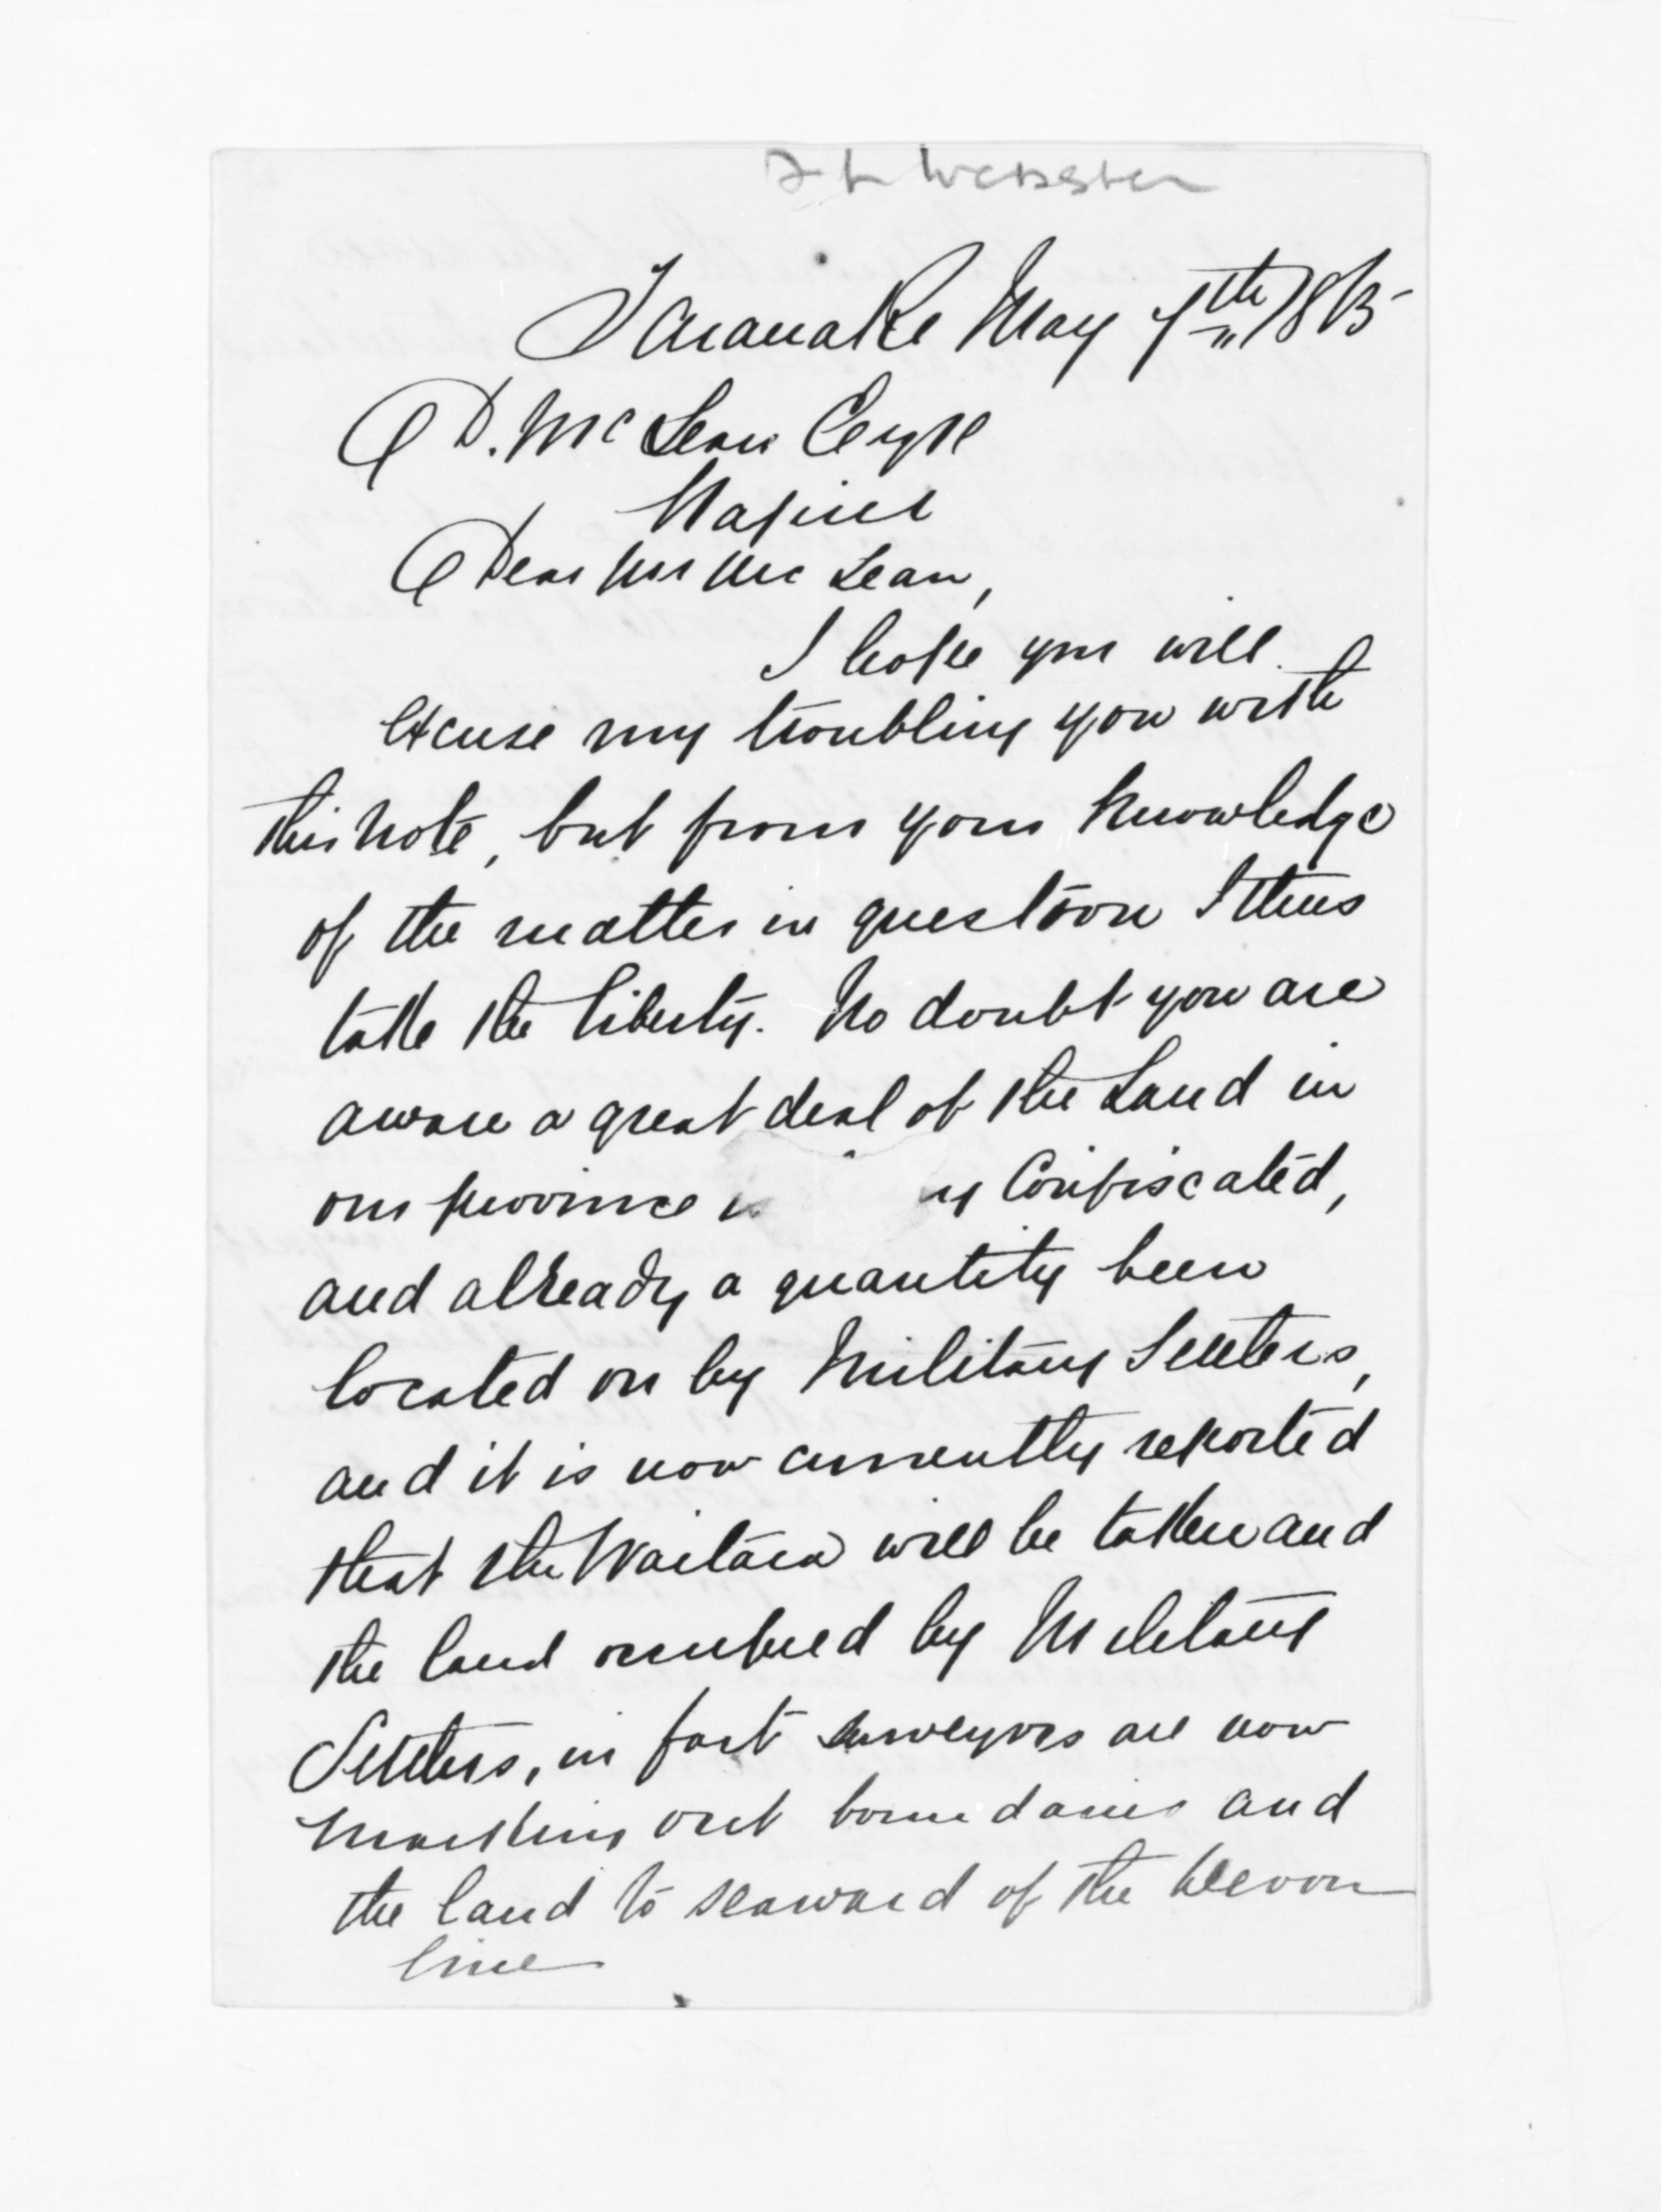 F L Webster
Taranaki May 7th 1865
D. McLean Esqre
Napier
Dear Mr McLean,
I hope you will
excuse my troubling you with
this note, but from your knowledge
of the matter in question I thus
take the liberty. No doubt you are
aware a great deal of the Land in
our province Confiscated,
and already a quantity been
located on by Military Settlers,
and it is now currently reported
that the Waitara will be taken and
the land occupied by Military
Settlers, in fact surveyors are now
marking out boundaries and
the land to seaward of the Devon
line